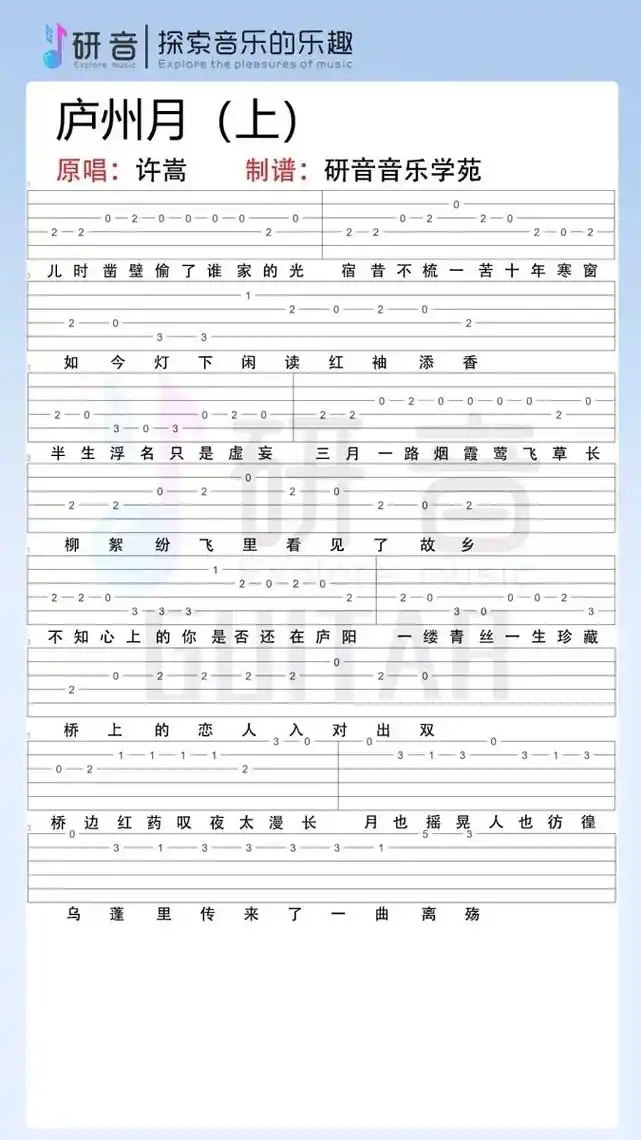 研音|探索音乐的乐趣
Explore music Explore the pleasures of music
庐州月（上）
原唱：许嵩 制谱：研音音乐学苑
0 2 0 0 0 0 0 0 0 2 2 0
2 2 2 2 2 2 0 2
儿时凿壁偷了谁家的光 宿昔不梳一苦十年寒窗
1
2 0 2 0
2 0 2
3 3
如今灯下闲读红袖添香
0 2 0 0 0 0 0 0
2 0 0 2 0 2 2 2
3 0 3
半生浮名只是虚妄 三月一路烟霞莺飞草长
0
0 2 2 0
2 2 2 0 2
柳絮纷飞里看见了故乡
1
2 0 2 0
2 2 0 2 2 0 0 0 2
3 3 3 3 0 3
不知心上的你是否还在庐阳 一缕青丝一生珍藏
0
0 2 2 2 2 2 0
2
桥上的恋人入对出双
3 0 0 0
1 1 1 1 3 1 3 3 1 3
0 2 2
桥边红药叹夜太漫长 月也摇晃人也彷徨
0 5 3
3 1 3 3 3 3 1
乌蓬里传来了一曲离殇
研音
Explore music
GUITAR